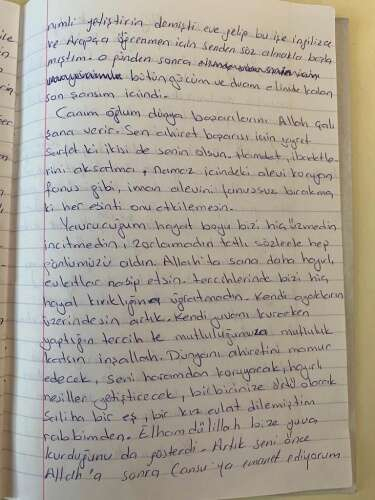 nimli yetiştirin demişti eve gelip bu işe ingilizce
ve Arapça öğrenmen için senden söz almakla başla
mıştım. o günden sonra
bütün gücüm ve duam elimde kalan
son şansım içindi.
Canım oğlum dünya başarılarını Allah çalı
şana verir. Sen ahiret başarısı için gayret
sarfet ki ikisi de senin olsun. Hamdet, ibadetle
rini aksatma, Namaz içindeki alevi koruyan
fanus gibi, iman alevini fanussuz bırakma
ki her esinti onu etkilemesin.
Yavrucuğum hayat boyu bizi hiç üzmedin
incitmedin, zorlamadın tatlı sözlerle hep
gönlümüzü aldın. Allah'ta sana daha hayırlı
evlatlar nasip etsin. tercihlerinle bizi hiç
hayal kırıklığına uğratmadın. Kendi ayakların
üzerindesin artık. Kendi yuvanı kurarken
yaptığın tercih te mutluluğunuza mutluluk
katsın inşallah. Dünyanı ahiretini mamur
edecek, seni haramdan koruyacak, hayırlı
nesiller yetiştirecek, birbirinize olarak
saliha bir eş, bir kız evlat dilemiştim
rabbimden. Elhamdülillah bize yuva
kurduğunu da gösterdi. Artık seni önce
Allah'a sonra Cansu'ya emanet ediyorum